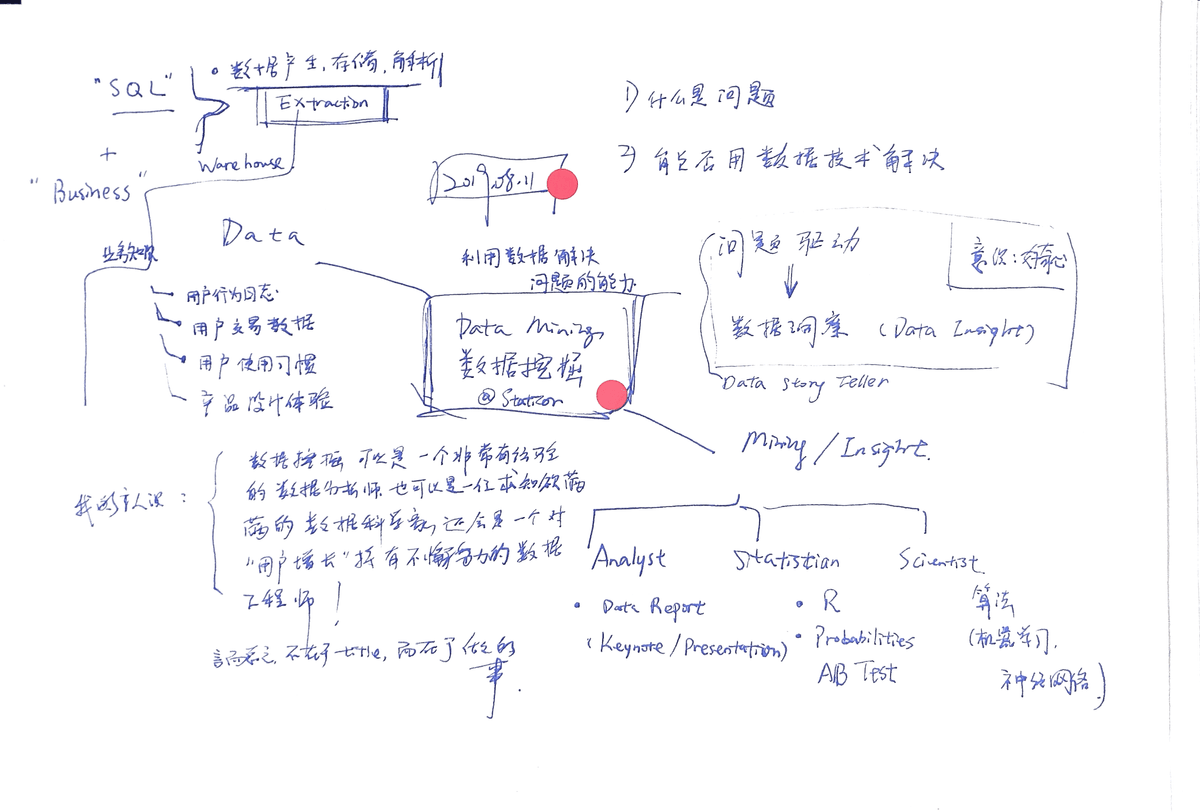 "SQL"
+
"Business"
• 数据产生,存储,解析
Extraction
Warehouse
2019.08.11
1) 什么是问题
2) 能否用数据技术解决
Data
业务知识
用户行为日志
用户交易数据
用户使用习惯
产品设计体验
利用数据解决
问题的能力
Data Mining,
数据挖掘
@Staticon
问题驱动
意识:好奇心
数据洞察 (Data Insight)
Data Story Teller
Mining / Insight.
我的认识:
数据挖掘 可以是一个非常有经验
的数据分析师 也可以是一位求知欲满
满的数据科学家, 还会是一个对
"用户增长"抱有不懈努力的数据
工程师!
言而总之, 不在于title, 而在于做的
事.
Analyst
• Data Report
(Keynote / Presentation)
Statistian
• R
• Probabilities
AB Test
Scientist
算法
(机器学习,
神经网络)